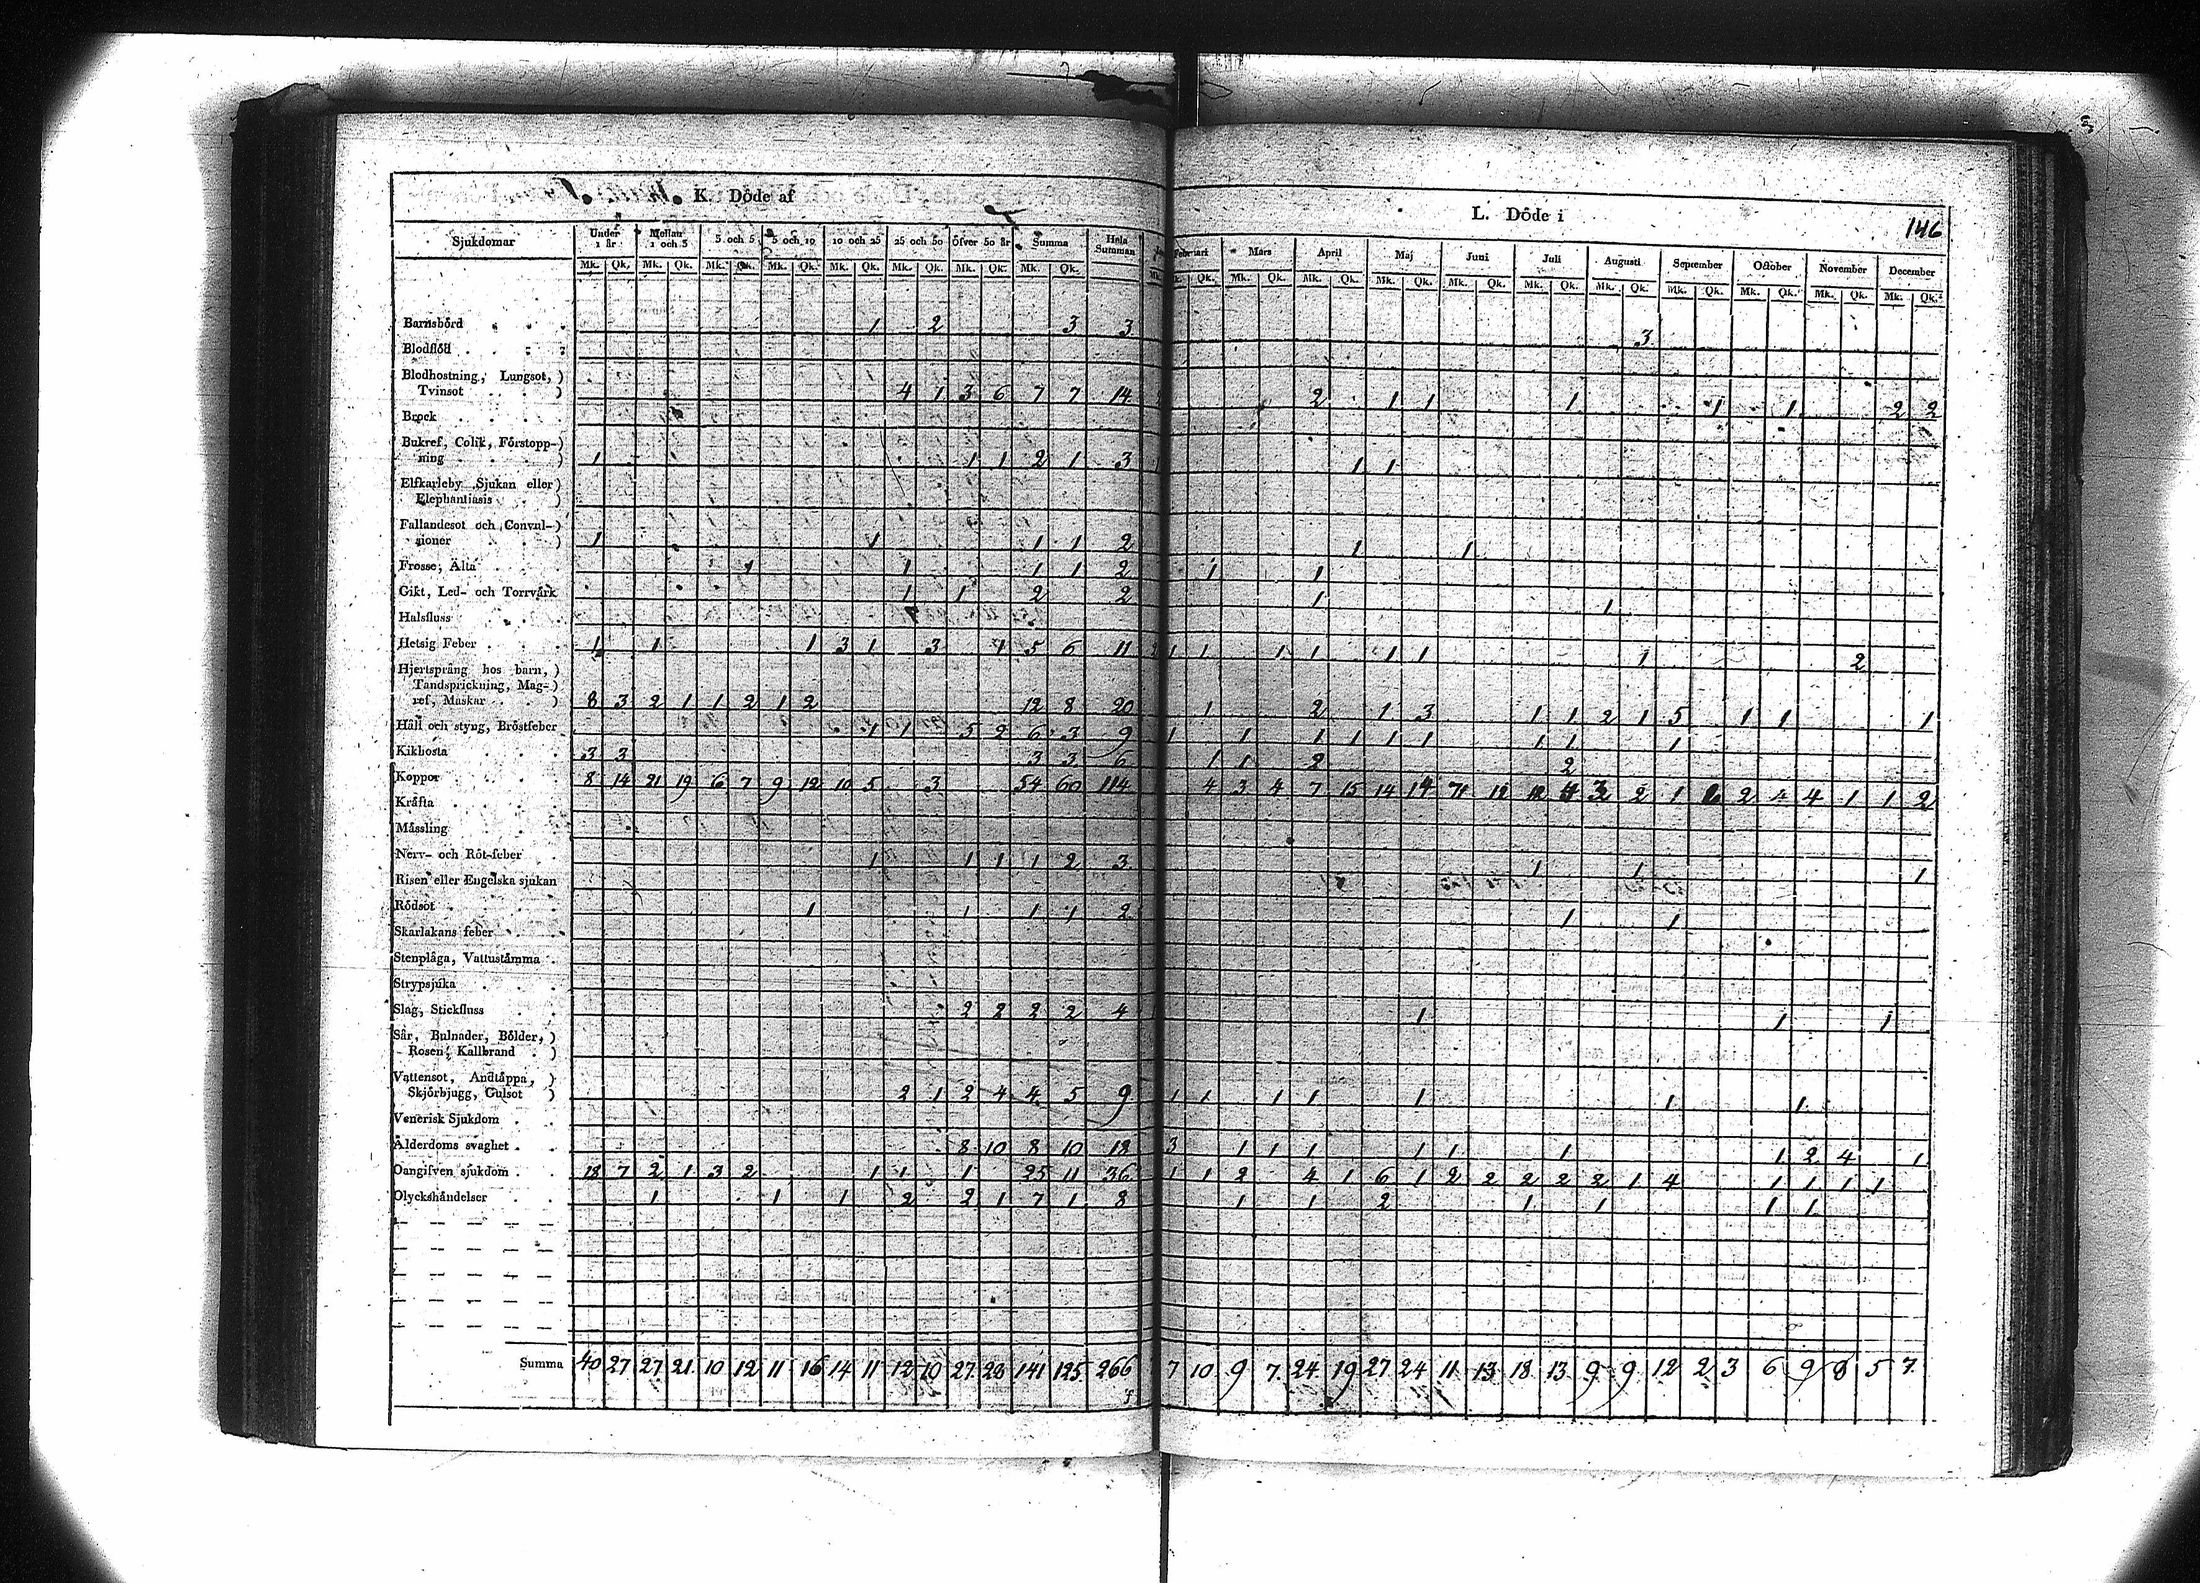 K. Döde af
L. Döde i
146
Sjukdomar Under 1 år Mellan 1 och 3 3 och 5 5 och 10 10 och 25 25 och 50 öfver 50 år Summa Hela Summan Februari Mars April Maj Juni Juli Augusti September October November December
Mk. Qk. Mk. Qk. Mk. Qk. Mk. Qk. Mk. Qk. Mk. Qk. Mk. Qk. Mk. Qk. Mk. Qk. Mk. Qk. Mk. Qk. Mk. Qk. Mk. Qk. Mk. Qk. Mk. Qk. Mk. Qk. Mk. Qk. Mk. Qk. Mk. Qk.
Barnsbörd 1 2 3 3 3
Blodflöd
Blodhostning, Lungsot,
Tvinsot 4 1 3 6 7 7 14 2 1 1 1 1 1 2 2
Brock
Bukref, Colik, Förstopp-
ning 1 1 1 2 1 3 1 1 1
Elfkarleby Sjukan eller
Elephantiasis
Fallandesot och Convul-
sioner 1 1 1 1 2 1 1
Frosse, Älta 1 1 1 1 2 1 1
Gikt, Led- och Torrvärk 1 1 2 2 1 1
Halsfluss
Hetsig Feber 1 1 1 3 1 3 1 5 6 11 1 1 1 1 1 1 1 2
Hjertsprång hos barn,
Tandsprickning, Mag-
ref, Maskar 8 3 2 1 1 2 1 2 12 8 20 1 2 1 3 1 1 2 1 5 1 1 1
Håll och styng, Bröstfeber 1 1 5 2 6 3 9 1 1 1 1 1 1 1 1 1
Kikhosta 3 3 3 3 6 1 1 2 2
Koppor 8 14 21 19 6 7 9 12 10 5 3 54 60 114 4 3 4 7 15 14 14 12 2 1 2 4 4 1 1 2
Kräfta
Mässling
Nerv- och Röt-feber 1 1 1 1 2 3 1 1 1
Risen eller Engelska sjukan
Rödsot 1 1 1 1 2 1 1
Skarlakans feber
Stenplåga, Vattustämma
Strypsjuka
Slag, Stickfluss 2 2 2 2 4 1 1 1
Sår, Bulnader, Bölder,
Rosen, Kallbrand
Vattensot, Andtäppa,
Skjörbjugg, Gulsot 2 1 2 4 4 5 9 1 1 1 1 1 1 1
Venerisk Sjukdom
Ålderdoms svaghet 8 10 8 10 18 3 1 1 1 1 1 1 1 2 4 1
Oangifven sjukdom 18 7 2 1 3 2 1 1 1 25 11 36 1 1 2 4 1 6 1 2 2 2 2 2 2 1 4 1 1 1 1
Olyckshändelser 1 1 1 2 2 1 7 1 8 1 1 2 1 1 1 1
Summa 40 27 27 21 10 12 11 16 14 11 12 10 27 28 141 125 266 7 10 9 7 24 19 27 24 11 13 18 13 9 9 12 2 3 6 9 8 5 7